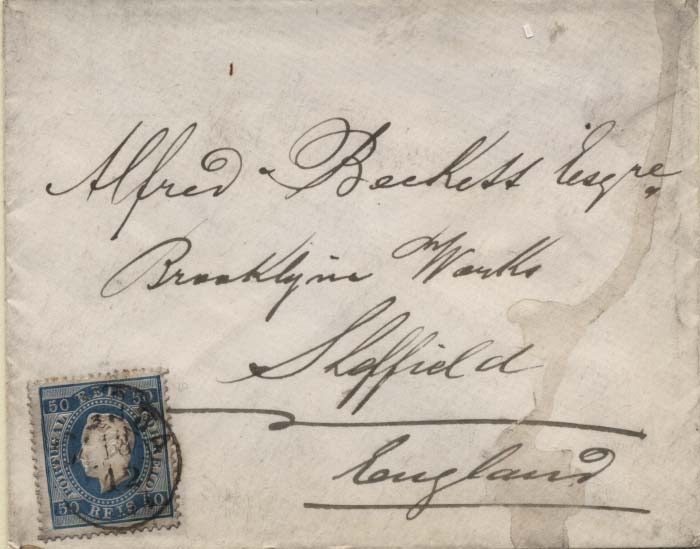 Alfred Beckett Esqre
Brooklyn Works
Sheffield
England
50 REIS 50
PORTUGAL
CORREIO
50 REIS 50